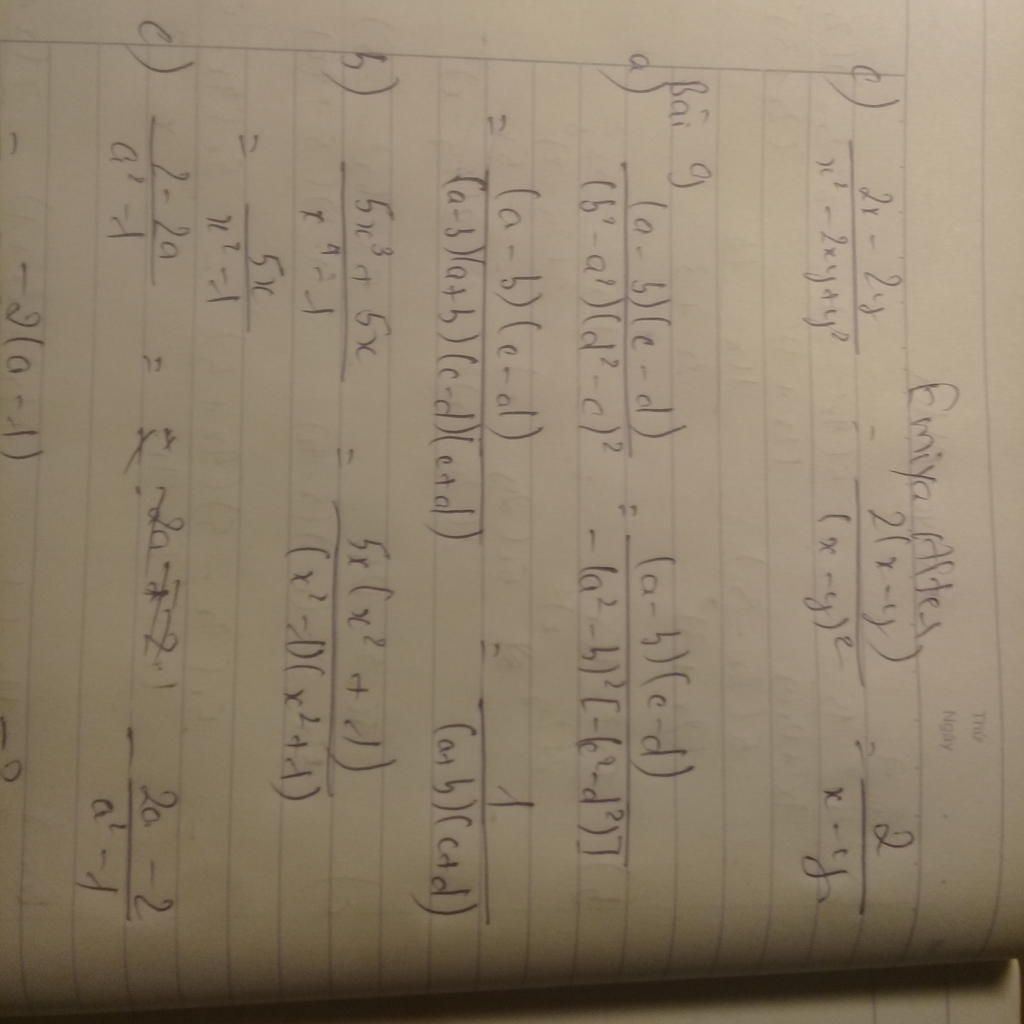 Thứ
Ngày
Emiya Alter
e) (2x - 2y)/(x² - 2xy + y²) = 2(x - y)/(x - y)² = 2/(x - y)
Bài 9
a) (a - b)(c - d)/(b² - a²)(d² - c)² = (a - b)(c - d)/-(a² - b)²[-(c² - d²)]
= (a - b)(c - d)/(a - b)(a + b)(c - d)(c + d) = 1/(a+b)(c+d)
b) (5x³ + 5x)/(x⁴ - 1) = 5x(x² + 1)/(x² - 1)(x² + 1)
= 5x/(x² - 1)
c) (2 - 2a)/(a² - 1) = - (2a - 2)/(a² - 1)
= -2(a - 1) -2